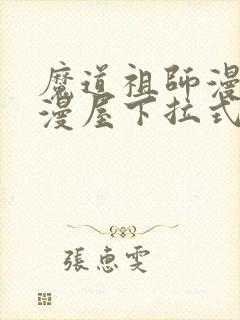 魔道祖師漫
漫屋下拉式
張惠雯